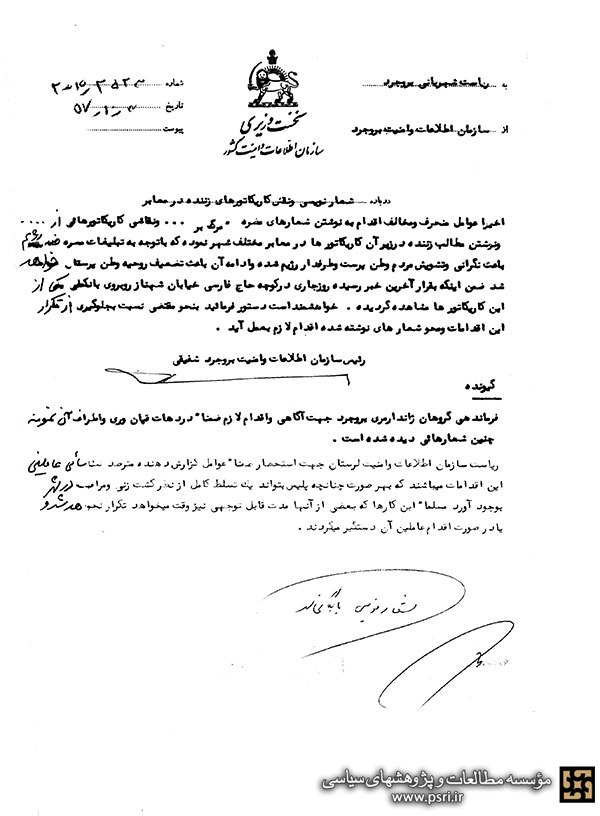 به ریاست شهربانی بروجرد
از سازمان اطلاعات وامنیت بروجرد
نخست وزیری
سازمان اطلاعات و امنیت کشور
شماره
تاریخ
پیوست
درباره شعار نویسی ونقاشی کاریکاتورهای زننده در معابر
اخیرا عوامل منحرف ومخالف اقدام به نوشتن شعارهای مضره مرگ بر ... ونقاشی کاریکاتورهائی از ....
ونوشتن مطالب زننده در زیر آن کاریکاتور ها در معابر مختلف شهر نموده که باتوجه به تبلیغات مضره ضد رژیم
باعث نگرانی وتشویش مردم وطن پرست وطرفدار رژیم شده وادامه آن باعث تضعیف روحیه وطن پرستان خواهد
شد ضمن اینکه بقرار آخرین خبر رسیده روزجاری در کوچه حاج فارسی خیابان شهناز روبروی بانک ملی یکی از
این کاریکاتور ها مشاهده گردیده . خواهشمند است دستور فرمایید بنحو مقتضی نسبت بجلوگیری از تکرار
این اقدامات ومحو شعار های نوشته شده اقدام لازم بعمل آید .
رئیس سازمان اطلاعات وامنیت بروجرد شفیقی
گیرنده
فرماندهی گروهان ژاندارمری بروجرد جهت آگاهی واقدام لازم ضمنا" در دهات وری واطراف آن
چنین شعارهائی دیده شده است .
ریاست سازمان اطلاعات وامنیت لرستان جهت استحضار ضمنا" عوامل گزارش دهنده مترصد شناسائی عاملین
این اقدامات میباشند که بهر صورت چنانچه پلیس بتواند یک تسلط کامل از نظر گشت زنی ومراقبت در شهر
بوجود آورد مسلما" این کارها که بعضی از آنها مدت قابل توجهی نیز وقت میخواهد تکرار نخواهد شد و
یا در صورت اقدام عاملین آن دستگیر میگردند .
شعار نویسی بایگانی شد
مؤسسه مطالعات و پژوهشهای سیاسی
www.psri.ir